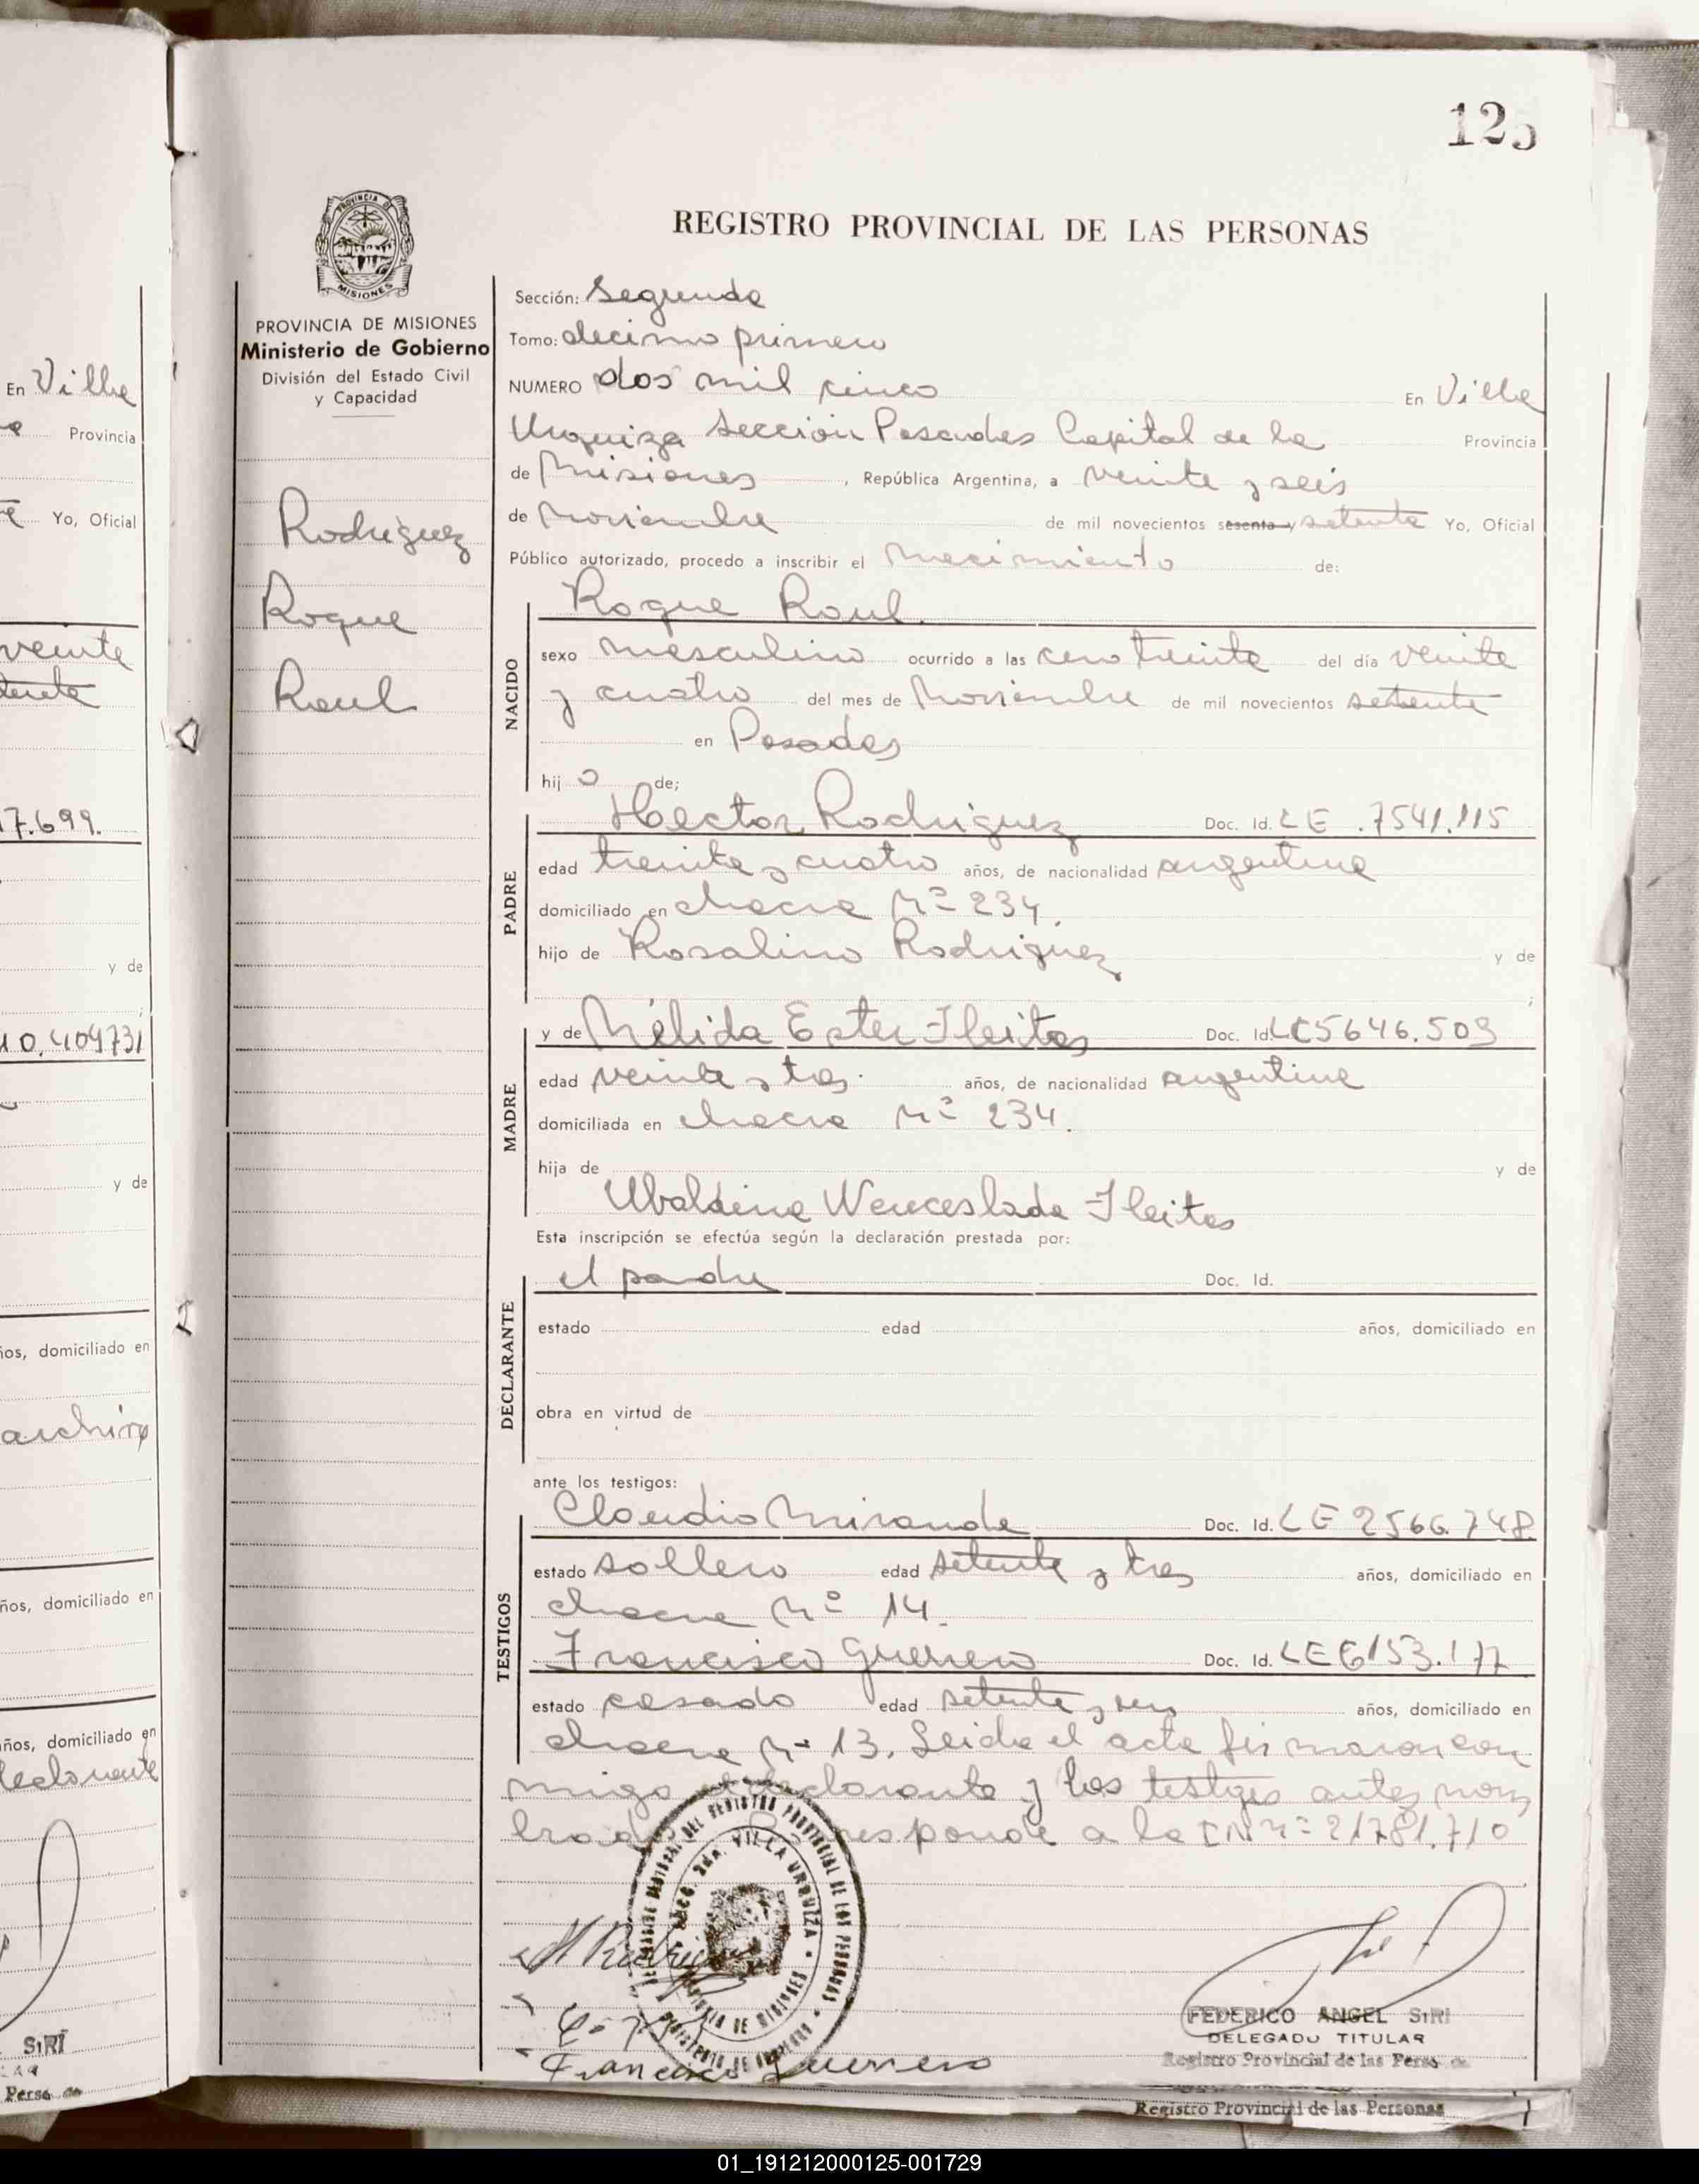 125
REGISTRO PROVINCIAL DE LAS PERSONAS
PROVINCIA DE MISIONES
Ministerio de Gobierno
División del Estado Civil
y Capacidad
Rodriguez
Roque
Raul
Sección: Segunda
Tomo: decimo primero
NUMERO dos mil cinco En Villa
Urquiza Sección Posadas Capital de la Provincia
de Misiones, República Argentina, a veinte y seis
de Noviembre de mil novecientos sesenta y setenta Yo, Oficial
Público autorizado, procedo a inscribir el nacimiento de:
NACIDO
Roque Raul
sexo masculino ocurrido a las cero treinta del día veinte
y cuatro del mes de Noviembre de mil novecientos setenta
en Posadas
hijo de;
PADRE
Hector Rodriguez Doc. Id. LE .7541.115
edad treinta y cuatro años, de nacionalidad argentina
domiciliado en chacra Nº 234.
hijo de Rosalino Rodriguez y de
;
MADRE
y de Nélida Ester Fleitas Doc. Id. LC 5646.503
edad veinte y tres años, de nacionalidad argentina
domiciliada en chacra Nº 234.
hija de y de
Ubaldina Wenceslada Fleitas
Esta inscripción se efectúa según la declaración prestada por:
DECLARANTE
el padre Doc. Id.
estado edad años, domiciliado en
obra en virtud de
ante los testigos:
TESTIGOS
Claudio Miranda Doc. Id. LE 2566.748
estado soltero edad setenta y tres años, domiciliado en
chacra Nº 14.
Francisco Guerrero Doc. Id. LE 6153.177
estado casado edad setenta y años, domiciliado en
chacra Nº 13. Leida el acta firmaron con
migo declarante y los testigos antes nom
responde a la Nº 21781.710
SECC. 2da. VILLA URQUIZA
Francisco Guerrero
FEDERICO ANGEL SIRI
DELEGADO TITULAR
Registro Provincial de las Perso
Registro Provincial de las Personas
En Villa
Provincia
Yo, Oficial
veinte
7.699.
y de
;
10.404731
y de
ños, domiciliado en
ños, domiciliado en
ños, domiciliado en
SIRI
Perso
01_191212000125-001729